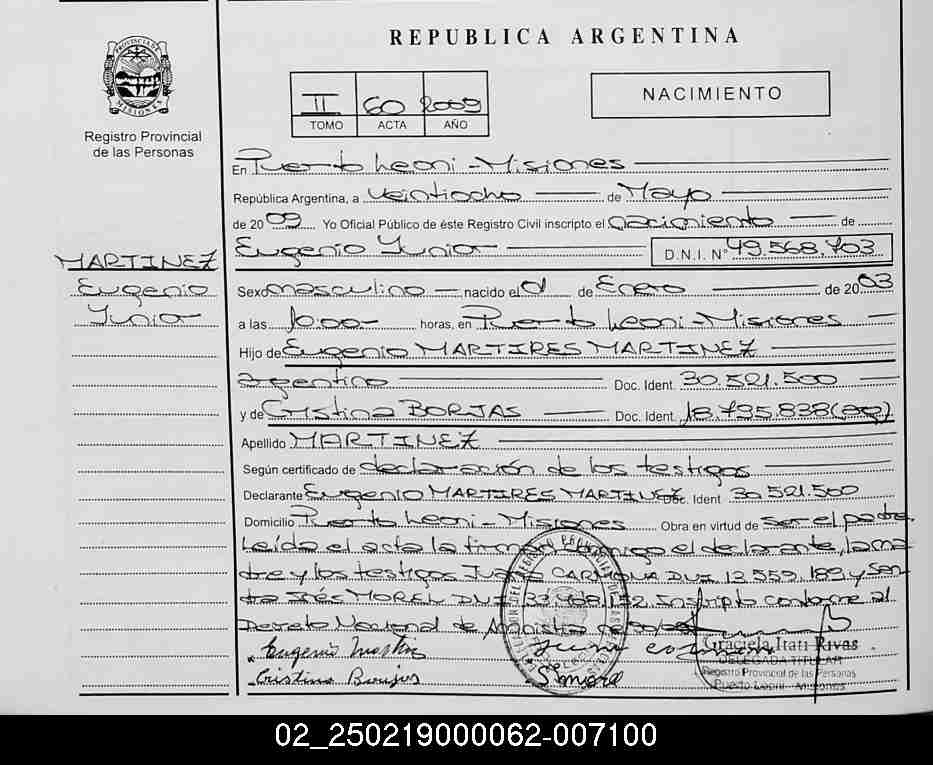 REPUBLICA ARGENTINA
PROVINCIA DE MISIONES
Registro Provincial
de las Personas
II 60 2009
TOMO ACTA AÑO
NACIMIENTO
En Puerto Leoni - Misiones
República Argentina, a veintiocho de Mayo
de 2009 Yo Oficial Público de éste Registro Civil inscripto el nacimiento de
Eugenio Yunior D.N.I. Nº 49.568.703
MARTINEZ
Eugenio
Yunior
Sexo masculino nacido el 01 de Enero de 2003
a las 10:00 horas, en Puerto Leoni - Misiones
Hijo de Eugenio MARTIRES MARTINEZ
argentino Doc. Ident. 30.521.500
y de Cristina BORJAS Doc. Ident. 18.795.838
Apellido MARTINEZ
Según certificado de declaración de los testigos
Declarante Eugenio MARTIRES MARTINEZ Doc. Ident 30.521.500
Domicilio Puerto Leoni - Misiones Obra en virtud de ser el padre.
Leído el acta la firman conmigo el declarante, la ma
dre y los testigos CARMONA DNI 13.559.189 y
Inés MOREL DNI Inscripto conforme al
Decreto Nacional de
Eugenio Martin
Cristina Borjas
Graciela Itati Rivas
DELEGADA TITULAR
Registro Provincial de las Personas
Puerto Leoni - Misiones
02_250219000062-007100